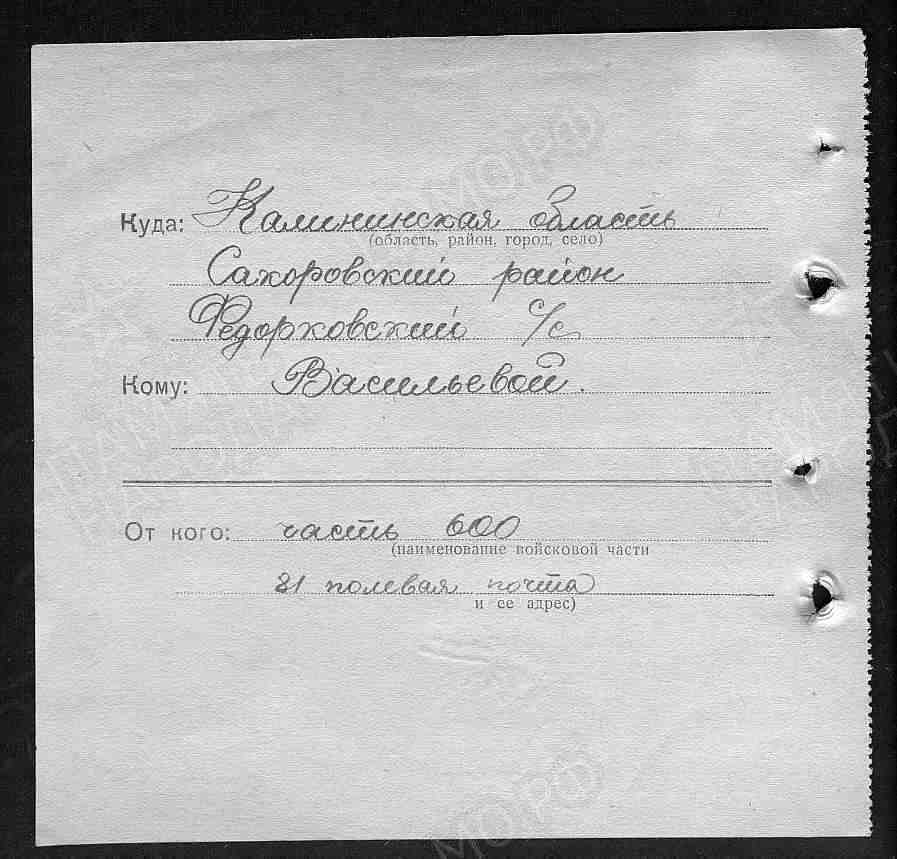 Куда: Калининская область
(область, район, город, село)
Сахоровский район
Федорковский с/с
Кому: Васильевой.
От кого: часть 600
(наименование войсковой части
81 полевая почта
и ее адрес)
МО.РФ
МО.РФ